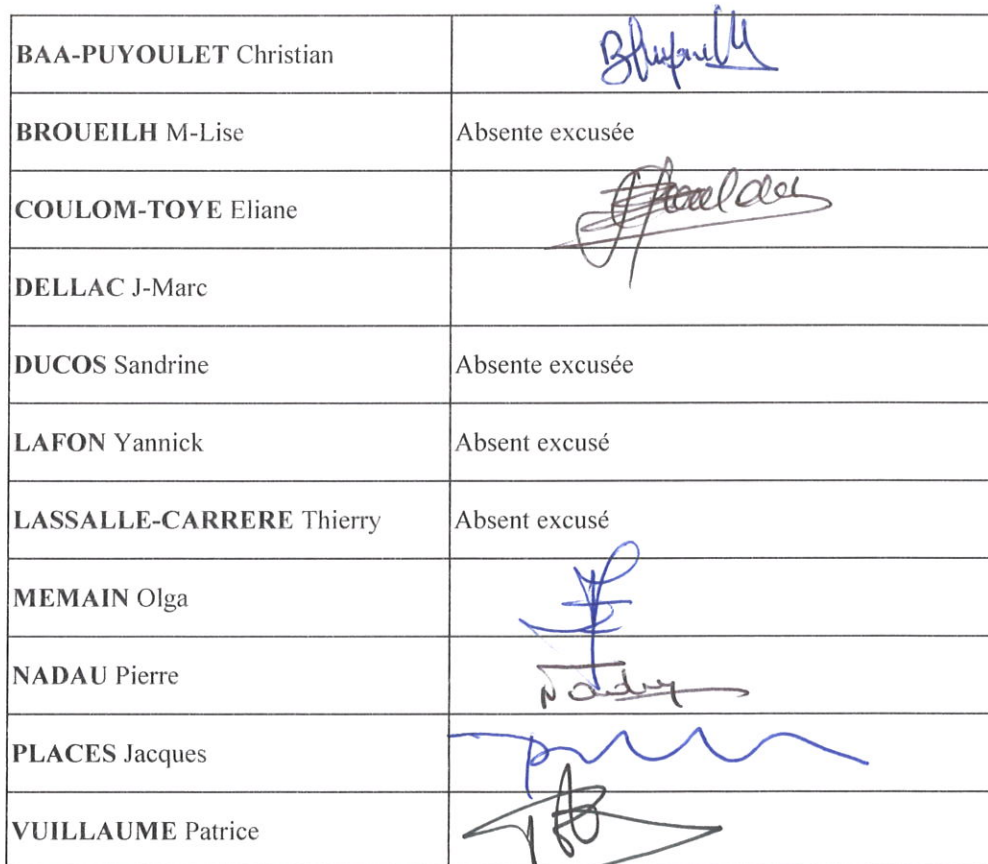 BAA-PUYOULET Christian
BROUEILH M-Lise Absente excusée
COULOM-TOYE Eliane
DELLAC J-Marc
DUCOS Sandrine Absente excusée
LAFON Yannick Absent excusé
LASSALLE-CARRERE Thierry Absent excusé
MEMAIN Olga
NADAU Pierre
PLACES Jacques
VUILLAUME Patrice